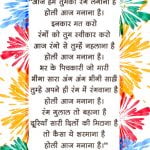 "आज हम तुमको रंग लगाना है
होली आज मनाना है।
इनकार मत करो
रंगों को तुम स्वीकार करो
आज रंगो से तुम्हें नहलाना है
होली आज मनाना है।
भर के पिचकारी जो मारी
भीगा सारा अंग अंग भीगी साड़ी
तुम्हे अपने ही रंग में रंगवाना है
होली आज मनाना है।
रंग गुलाल तो बहाना है
दूरियाँ सारी दिलों की मिटाना है
तो कैसा ये शरमाना है
होली आज मनाना है।"